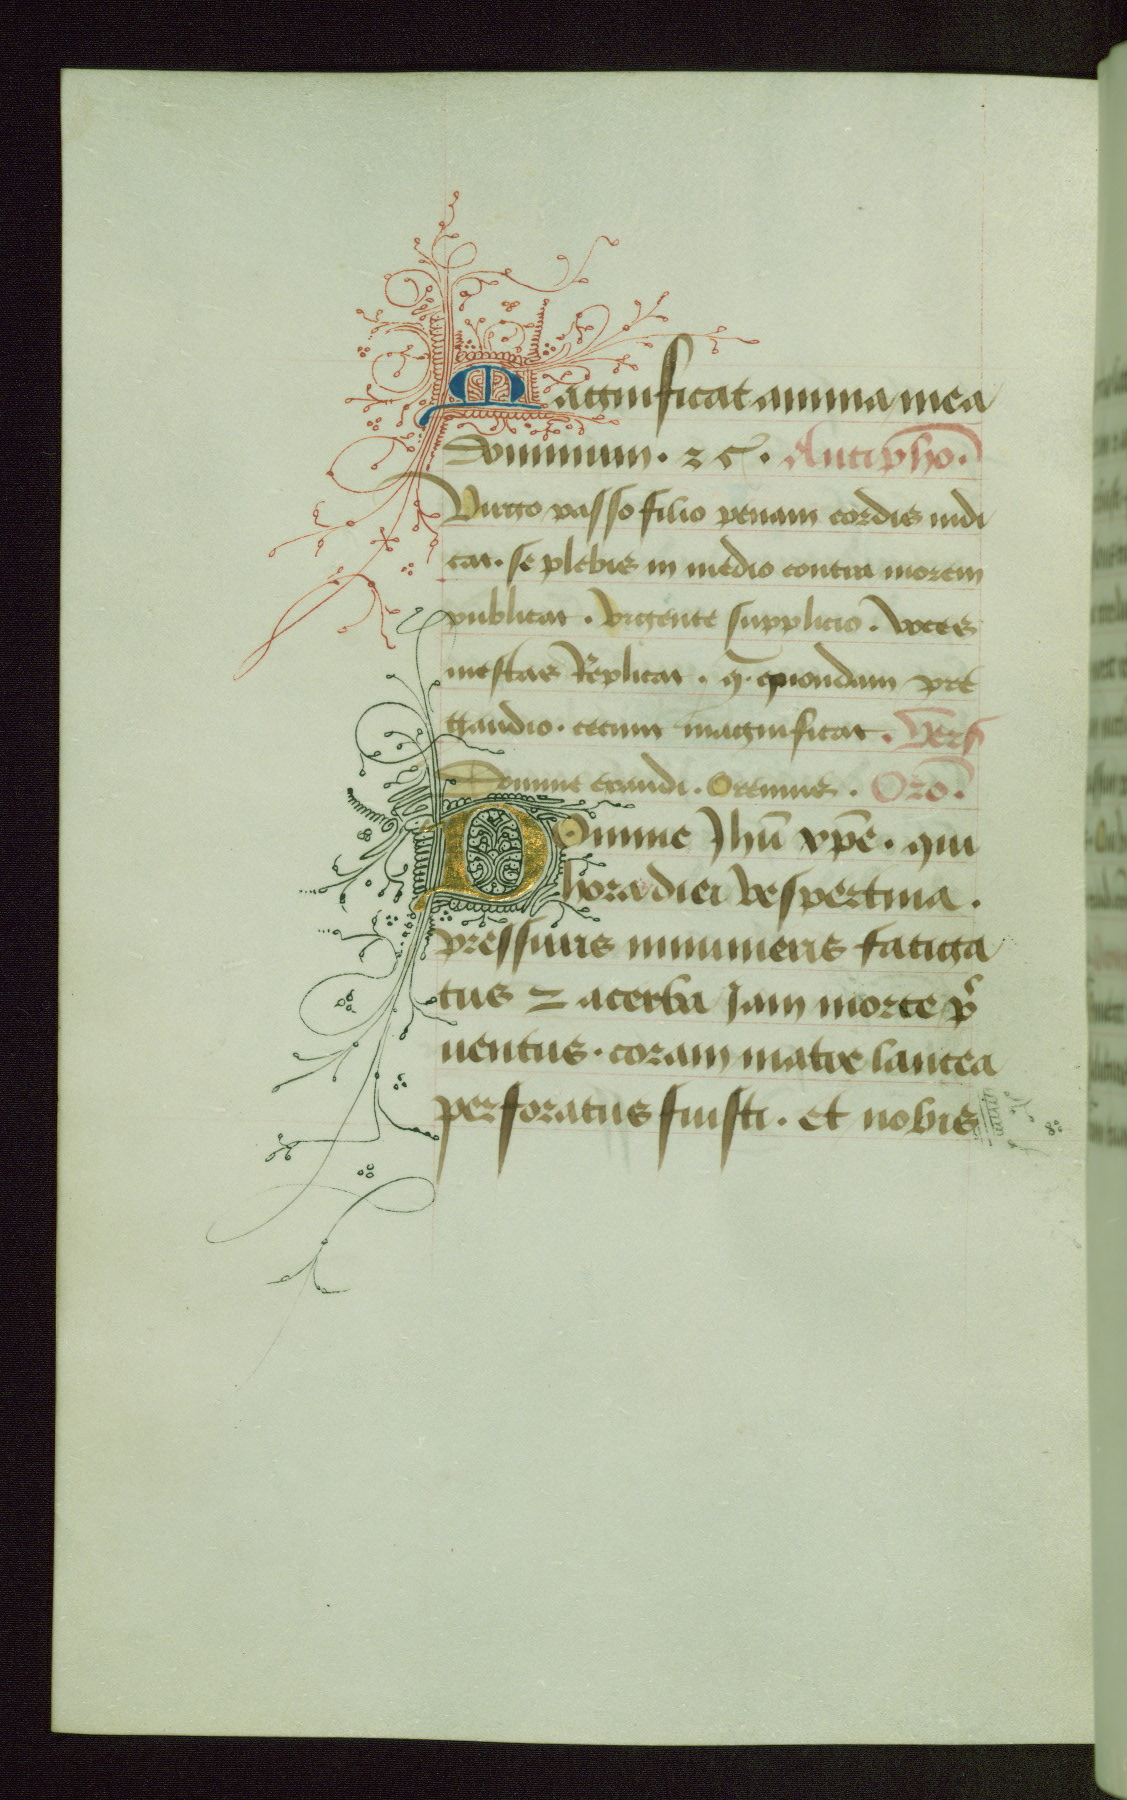 Magnificat anima mea
dominum · ꝛc̃ · Antipho̅.
Virgo passo filio penam cordis indi
cat. se plebis in medio contra morem
publicat . vrgente supplicio . voces
mestas Replicat . q̃ quondam pre
gaudio . cecinit magnificat . Vers
Domine exaudi . Oremus . Oro̅.
Domine Jhu̅ xp̅e . qui
hora diei vespertina .
pressuris innumeris fatiga
tus ⁊ acerba Jam morte p̃
uentus . coram matre lancea
perforatus fuisti . et nobis